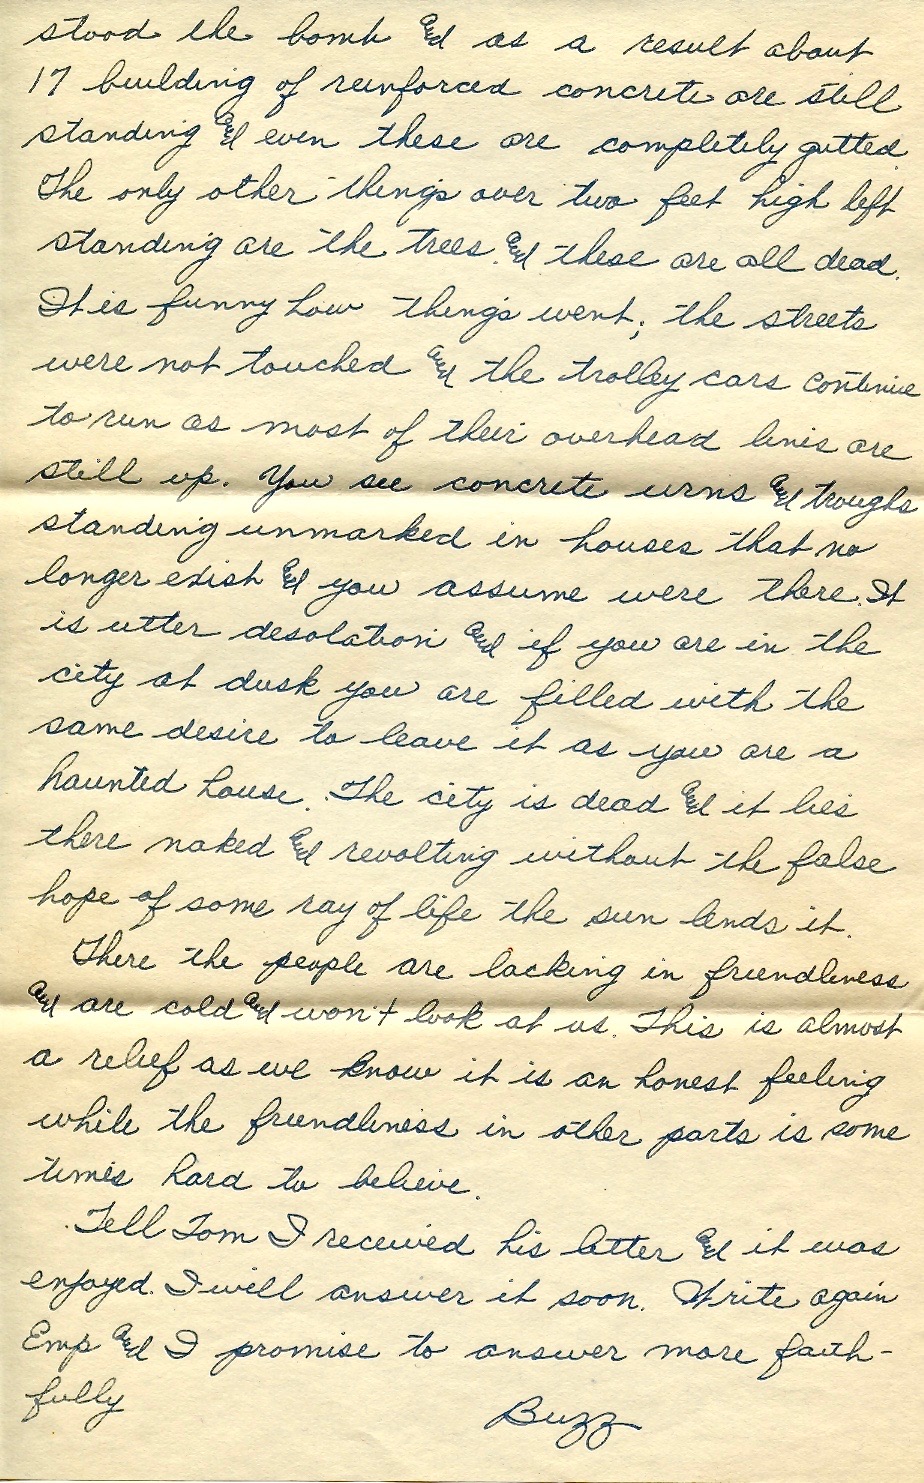 stood the bomb and as a result about
17 building of reinforced concrete are still
standing and even these are completely gutted.
The only other things over two feet high left
standing are the trees and these are all dead.
It is funny how things went; the streets
were not touched and the trolley cars continue
to run as most of their overhead lines are
still up. You see concrete urns and troughs
standing unmarked in houses that no
longer exist and you assume were there. It
is utter desolation and if you are in the
city at dusk you are filled with the
same desire to leave it as you are a
haunted house. The city is dead and it lies
there naked and revolting without the false
hope of some ray of life the sun lends it.
There the people are lacking in friendliness
and are cold and won't look at us. This is almost
a relief as we know it is an honest feeling
while the friendliness in other parts is some
times hard to believe.
Tell Tom I received his letter and it was
enjoyed. I will answer it soon. Write again
Emp and I promise to answer more faith-
fully
Buzz